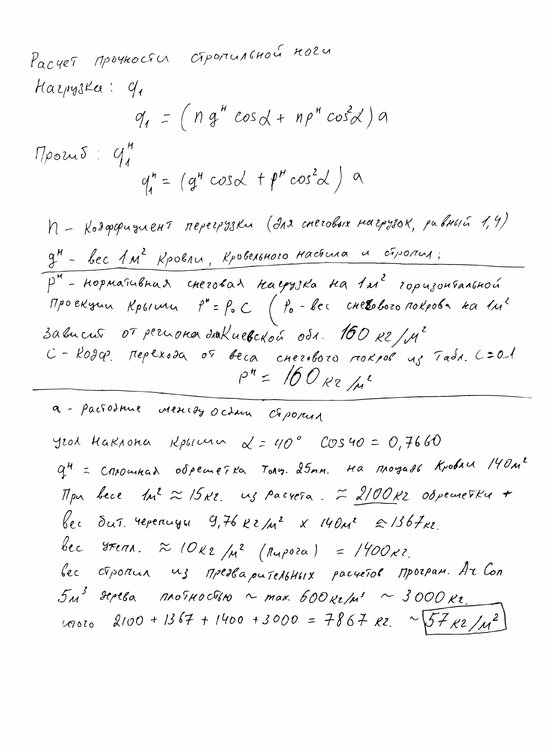 Расчет прочности стропильной ноги
Нагрузка: q₁
q₁ = (n gᴴ cosα + npᴴ cos²α) a
Прогиб: q₁ᴴ
q₁ᴴ = (gᴴ cosα + pᴴ cos²α) a
n - коэффициент перегрузки (для снеговых нагрузок, равный 1,4)
gᴴ - вес 1м² кровли, кровельного настила и стропил;
pᴴ - нормативная снеговая нагрузка на 1м² горизонтальной
проекции крыши pᴴ = p₀ c (p₀ - вес снегового покрова на 1м²
зависит от региона для Киевской обл. 160 кг/м²
c - коэф. перехода от веса снегового покров из табл. c=0..1
pᴴ = 160 кг/м²
a - растояние между осями стропил
угол наклона крыши α = 40° cos40 = 0,7660
gᴴ = сплошная обрешетка толщ. 25мм. на площадь кровли 140м²
При весе 1м² ≈ 15кг. из расчета. ≈ 2100кг обрешетки +
вес бит. черепицы 9,76 кг/м² x 140м² ≈ 1367кг.
вес утепл. ≈ 10кг/м² (пирога) = 1400кг.
вес стропил из предварительных расчетов програм. Ar Con
5м³ дерева плотностью ~ max. 600кг/м³ ~ 3000кг.
итого 2100 + 1367 + 1400 + 3000 = 7867 кг. ~ 57 кг/м²